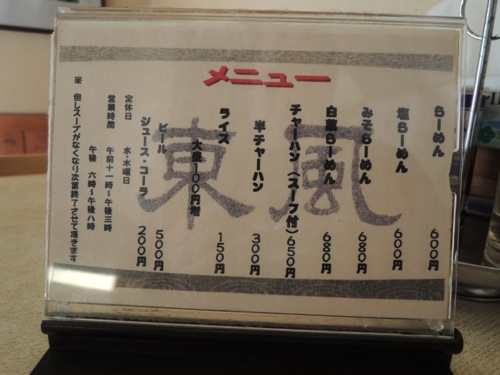 メニュー
東風
らーめん 600円
塩らーめん 600円
みそらーめん 680円
白菜らーめん 680円
チャーハン(スープ付) 650円
半チャーハン 300円
ライス 150円
大盛100円増
ビール 500円
ジュース・コーラ 200円
定休日 水・木曜日
営業時間 午前十一時〜午後三時
午後 六時〜午後八時
※ 但しスープがなくなり次第終了させて頂きます